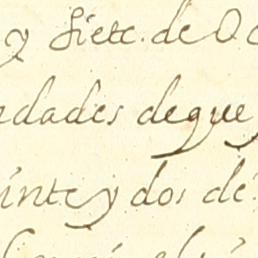 y Siete. de Oc
edades deque
inte y dos de